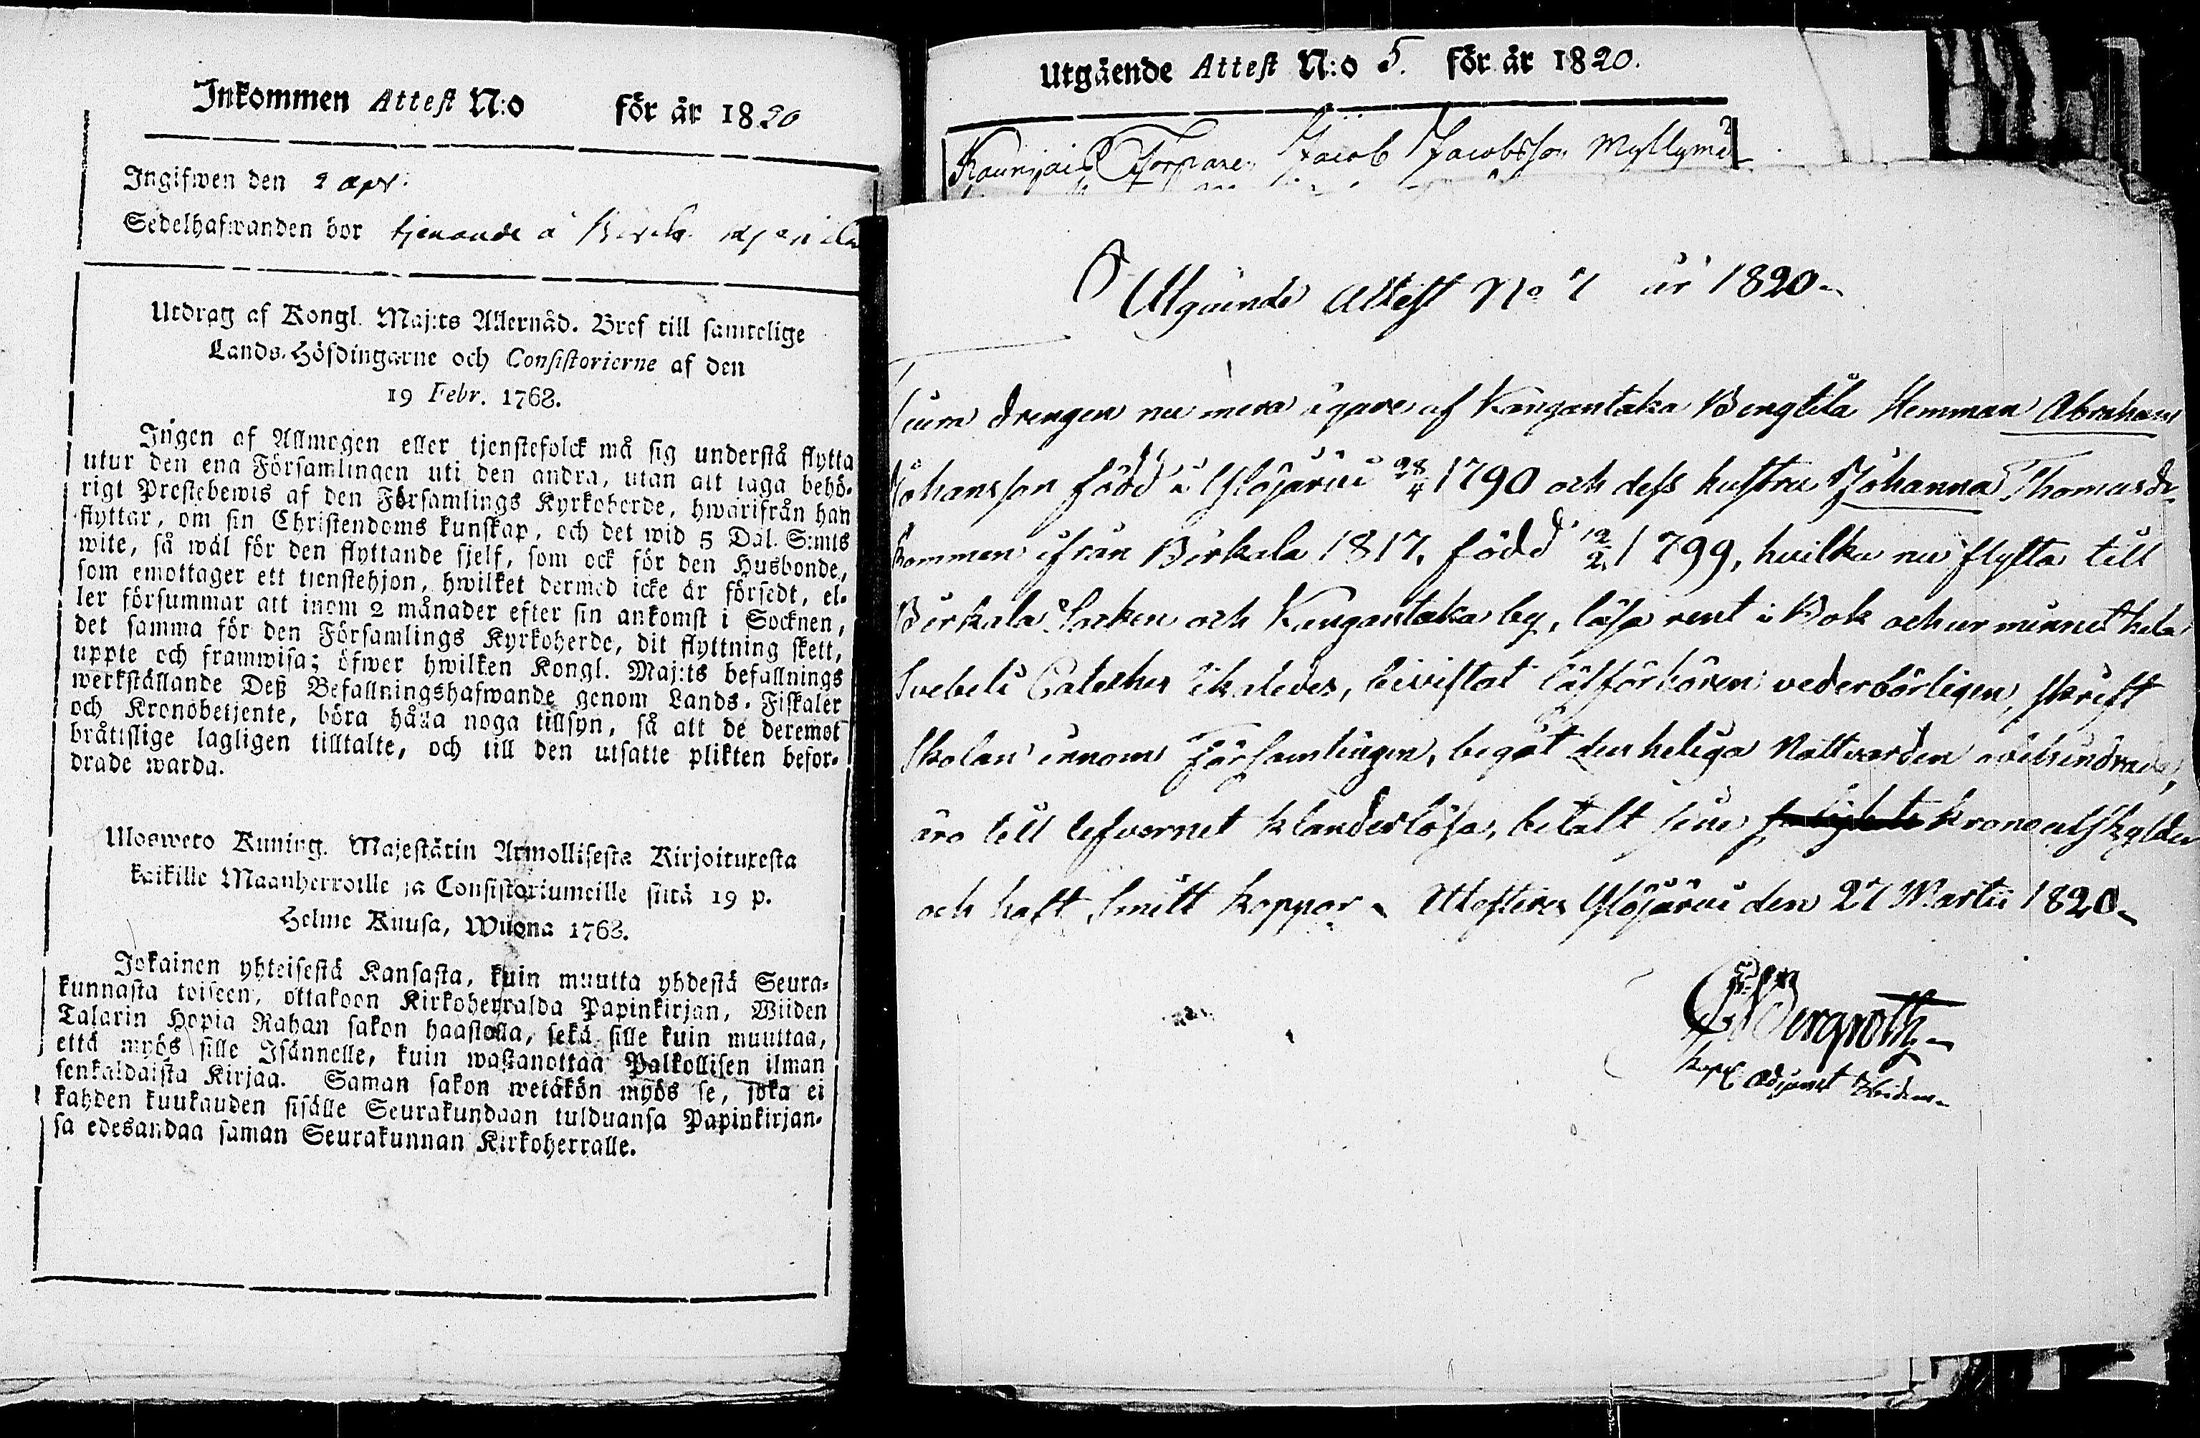 Inkommen Attest N:o för år 1820
Ingifwen den 2 apr.
Sedelhafwanden bor tjenande å
Utdrag af Kongl. Maj:ts Allernåd. Bref till samtelige
Lands-Höfdingarne och Consistorierne af den
19 Febr. 1768.
Ingen af Allmogen eller tjenstefolck må sig understå flytta
utur den ena Församlingen uti den andra, utan att taga behö-
rigt Prestebewis af den Församlings Kyrkoherde, hwarifrån han
flyttar, om sin Christendoms kunskap, och det wid 5 Dal. S:mts
wite, så wäl för den flyttande sjelf, som ock för den Husbonde,
som emottager ett tjenstehjon, hwilket dermed icke är försedt, el-
ler försummar att inom 2 månader efter sin ankomst i Socknen,
det samma för den Församlings Kyrkoherde, dit flyttning skett,
uppte och framwisa; öfwer hwilken Kongl. Maj:ts befallnings
werkställande Deß Befallningshafwande genom Lands-Fiskaler
och Kronobetjente, böra hålla noga tillsyn, så att de deremot
bråtislige lagligen tilltalte, och till den utsatte plikten befor-
drade warda.
Uloswero Kuning. Majestätin Armollisesta Kirjoituxesta
kaikille Maanherroille ja Consistoriumeille siitä 19 p.
Helme Kuusa, Wuona 1768.
Jokainen yhteisestä Kansasta, kuin muutta yhdestä Seura-
kunnasta toiseen, ottakoon Kirkoherralda Papinkirjan, Wiiden
Talarin Hopia Rahan sakon haastolla, sekä sille kuin muuttaa,
että myös sille Isännelle, kuin wastanottaa Palkollisen ilman
senkaldaista Kirjaa. Saman sakon wetäkön myös se, joka ei
kahden kuukauden sisälle Seurakundaan tulduansa Papinkirjan-
sa edesandaa saman Seurakunnan Kirkoherralle.
Utgående Attest N:o 5. för år 1820.
Torpare Jacob Jacobsson Myllymä
Utgående Attest No 7 år 1820
drengen nu mera ägare af Kangantaka Bengtila Hemman Abraham
Johansson född i Ylöjärvi 28/4 1790 och dess hustru Johanna Thomasdr
kommen ifrån Birkala 1817, född 12/2 1799, hvilka nu flytta till
Birkala Socken och Kangantaka by, läsa rent i Bok och ur minnet hela
Svebeli Cateches likaledes, bevistat läsförhören vederbörligen, skrift
skolan innom Församlingen, begåt den heliga Nattvarden oförhindrade,
äro till lefvernet klanderlösa, betalt sine Kronoutskylder
och haft Smitt koppor. Attesteras Ylöjärvi den 27 Martii 1820
Bergroth
Kapl. Adjunct ibidem